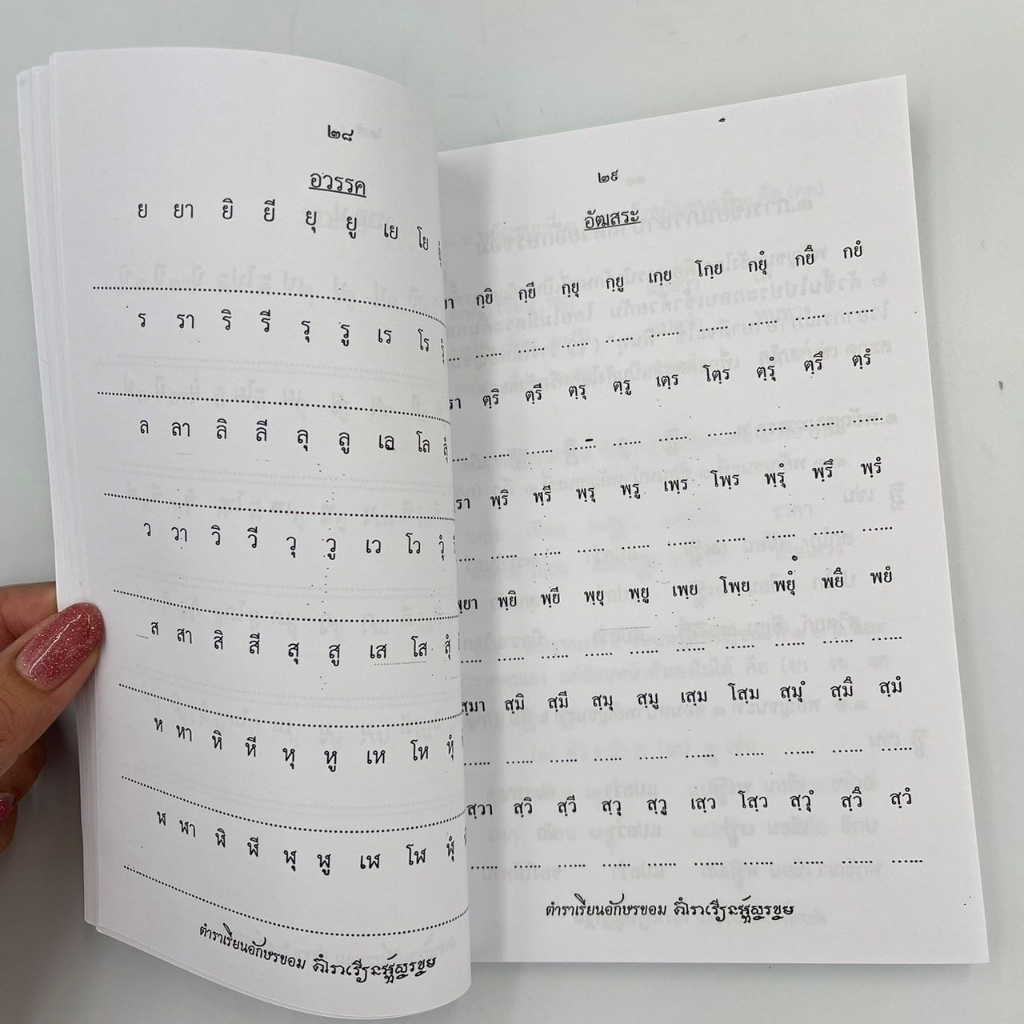 ๒๘
อวรรค
ย ยา ยิ ยี ยุ ยู เย โย
ร รา ริ รี รุ รู เร โร
ล ลา ลิ ลี ลุ ลู เล โล ลุํ
ว วา วิ วี วุ วู เว โว วุํ
ส สา สิ สี สุ สู เส โส สุํ
ห หา หิ หี หุ หู เห โห หุํ
ฬ ฬา ฬิ ฬี ฬุ ฬู เฬ โฬ ฬุํ
ตำราเรียนอักษรขอม
๒๙
อัฒสระ
กฺยิ กฺยี กฺยุ กฺยู เกฺย โกฺย กยุํ กยึ กยํ
ตฺริ ตฺรี ตฺรุ ตฺรู เตฺร โตฺร ตฺรุํ ตฺรึ ตฺรํ
พฺริ พฺรี พฺรุ พฺรู เพฺร โพฺร พฺรุํ พฺรึ พฺรํ
พฺยา พฺยิ พฺยี พฺยุ พฺยู เพฺย โพฺย พยุํ พยึ พยํ
สฺมา สฺมิ สฺมี สฺมุ สฺมู เสฺม โสฺม สฺมุํ สฺมึ สฺมํ
สฺวา สฺวิ สฺวี สฺวุ สฺวู เสฺว โสฺว สฺวุํ สฺวึ สฺวํ
ตำราเรียนอักษรขอม